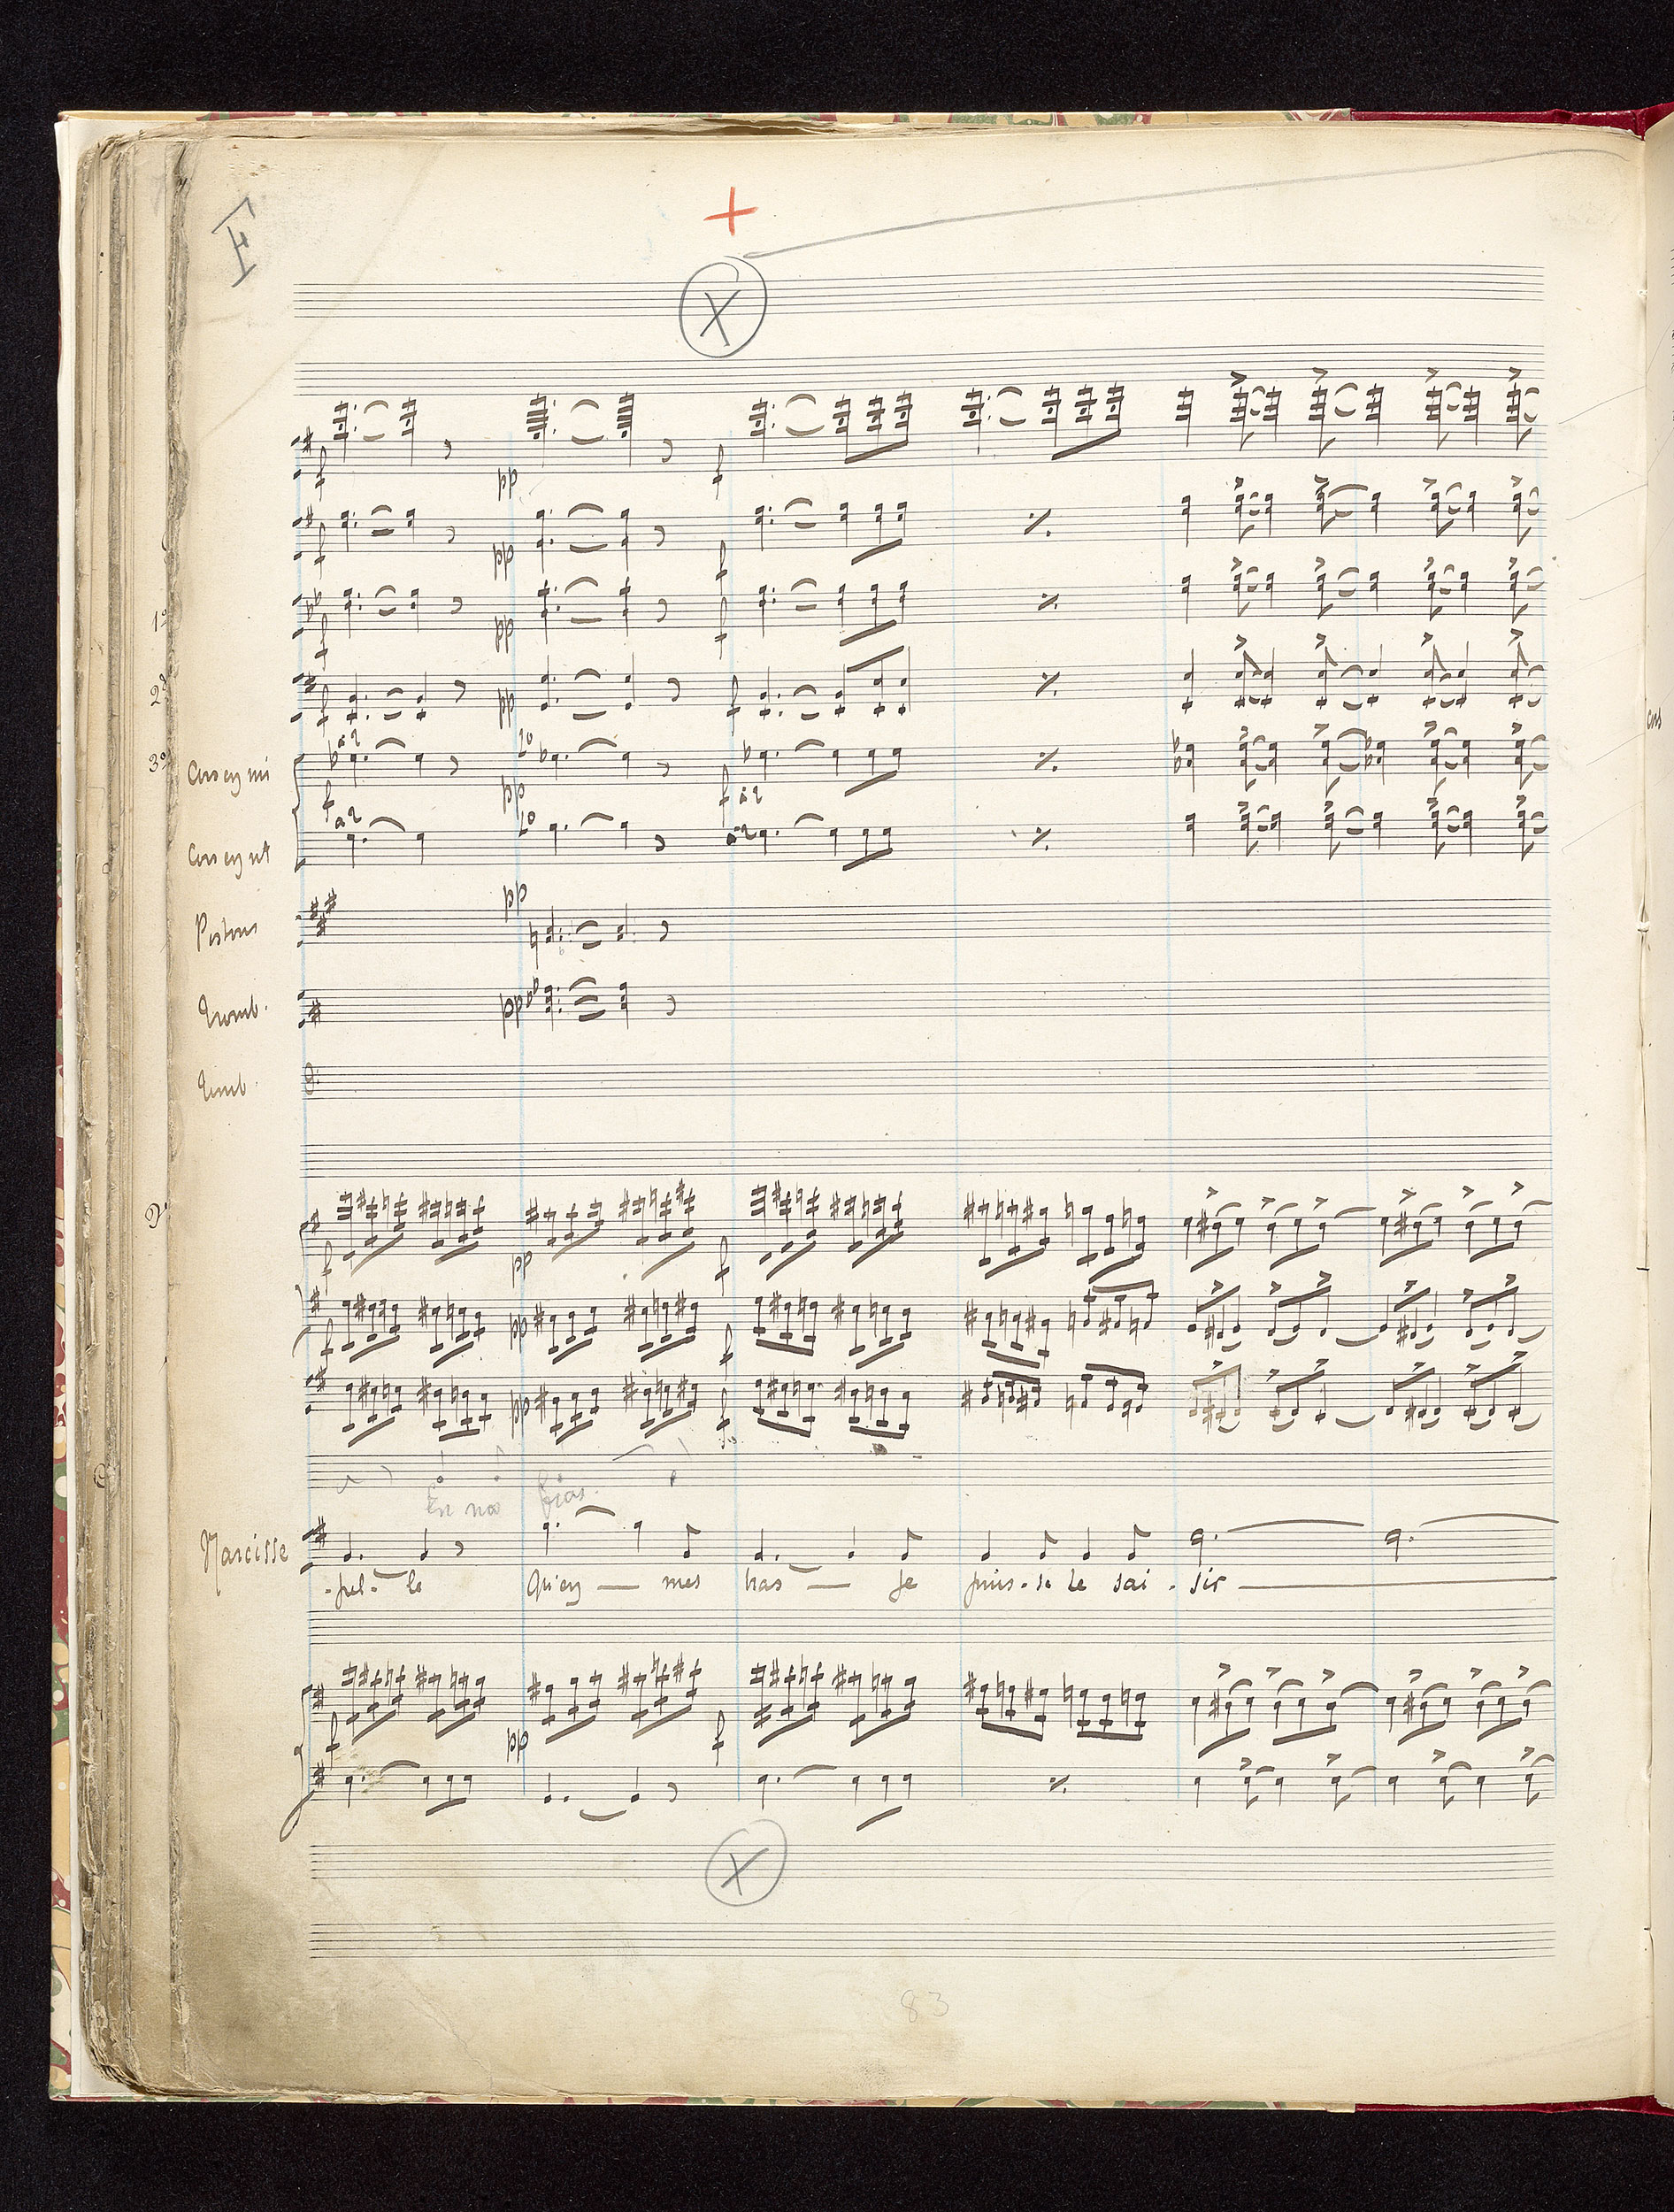 F
+
X
f pp f
f pp f
1º
f pp f
2º
f pp f
3º
Cors en mi
a2 1º
f pp f a2
Cors en ut
a2 1º a2
Pistons
pp
Tromb.
pp
Timb.
f pp f
f pp f
f pp f
En nos bras
Narcisse
-pel-le Qu'en — mes bras — Je puis-se le sai-sir —
f pp f
X
83